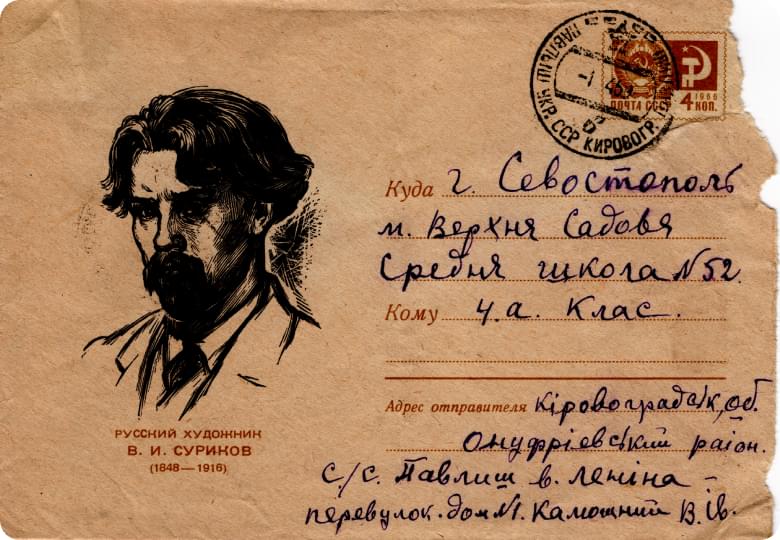 ПОЧТА СССР 1966 4 КОП.
ПАВЛЫШ УКР. ССР КИРОВОГР.
Куда г. Севостополь
м. Верхня Садовя
Средня школа N52.
Кому 4.а. Клас.
Адрес отправителя Кіровоградськ, об.
Онуфріевський район.
с./с. Павлиш в. леніна –
перевулок. дом №1. Камошний В. Ів.
РУССКИЙ ХУДОЖНИК
В. И. СУРИКОВ
(1848—1916)